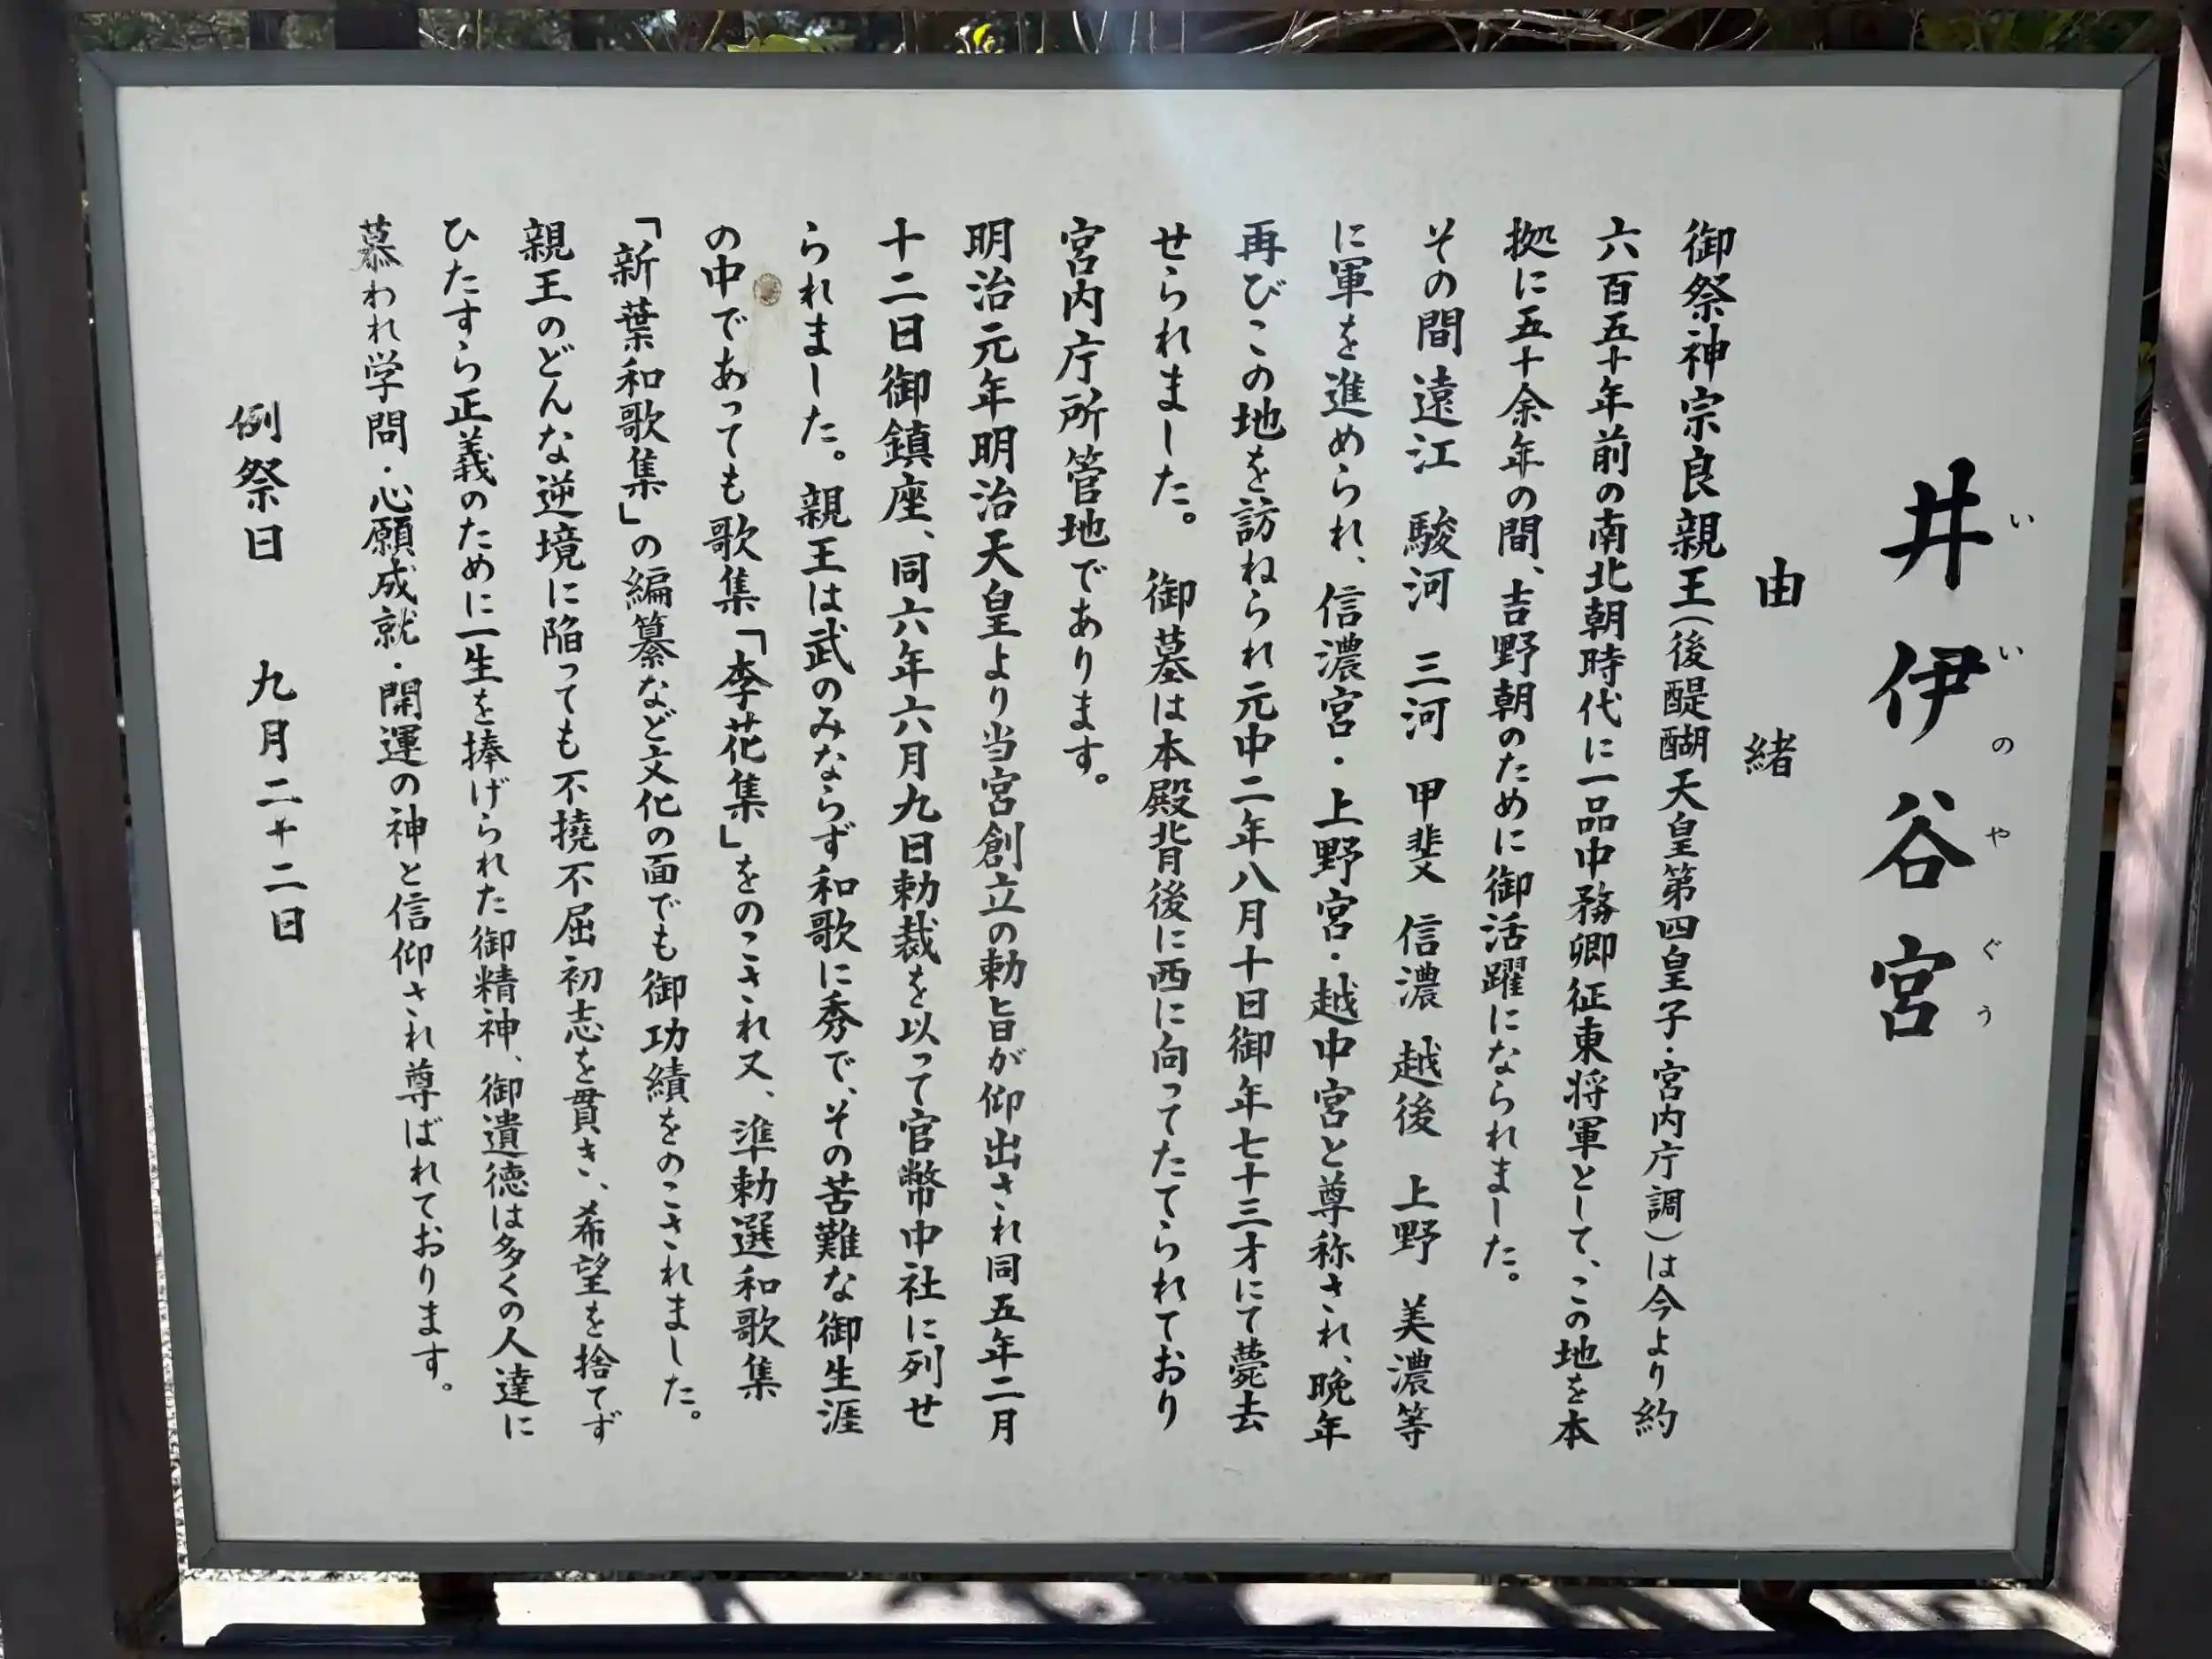 井伊谷宮
いいのやぐう
由緒
御祭神宗良親王(後醍醐天皇第四皇子・宮内庁調)は今より約
六百五十年前の南北朝時代に一品中務卿征東将軍として、この地を本
拠に五十余年の間、吉野朝のために御活躍になられました。
その間遠江 駿河 三河 甲斐 信濃 越後 上野 美濃等
に軍を進められ、信濃宮・上野宮・越中宮と尊称され、晩年
再びこの地を訪ねられ元中二年八月十日御年七十三才にて薨去
せられました。御墓は本殿背後に西に向ってたてられており
宮内庁所管地であります。
明治元年明治天皇より当宮創立の勅旨が仰出され同五年二月
十二日御鎮座、同六年六月九日勅裁を以って官幣中社に列せ
られました。親王は武のみならず和歌に秀で、その苦難な御生涯
の中であっても歌集「李花集」をのこされ又、準勅選和歌集
「新葉和歌集」の編纂など文化の面でも御功績をのこされました。
親王のどんな逆境に陥っても不撓不屈初志を貫き、希望を捨てず
ひたすら正義のために一生を捧げられた御精神、御遺徳は多くの人達に
慕われ学問・心願成就・開運の神と信仰され尊ばれております。
例祭日 九月二十二日